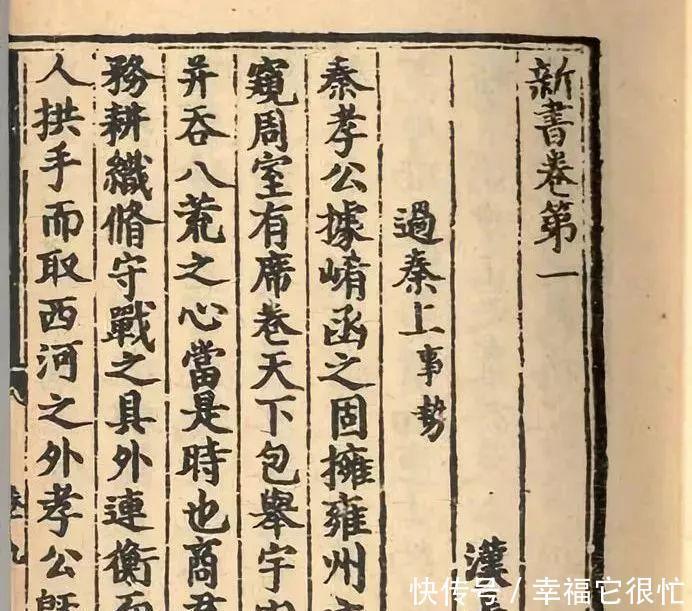 新書卷第一
漢
過秦上事勢
秦孝公據崤函之固擁雍州
窺周室有席卷天下包舉宇
并吞八荒之心當是時也商君
務耕織脩守戰之具外連衡而
人拱手而取西河之外孝公既
快传号 / 幸福它很忙